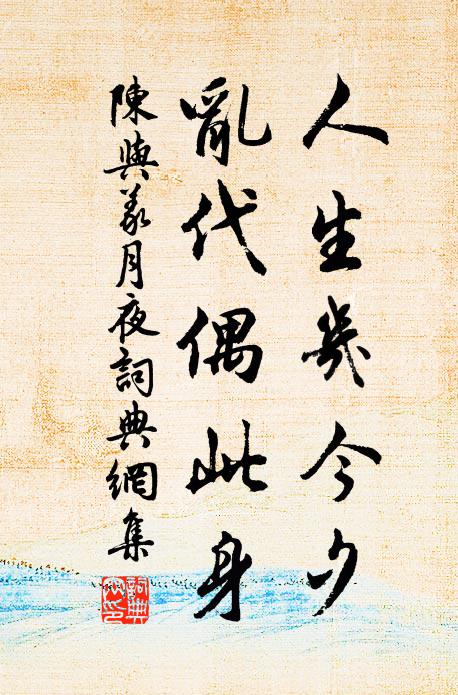 人生幾今夕
亂代偶此身
陳與義月夜詞典網集